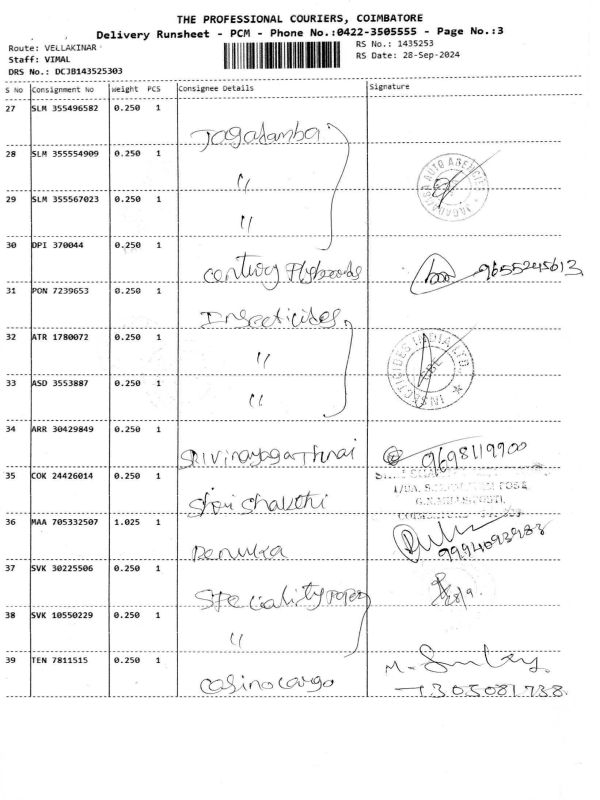 THE PROFESSIONAL COURIERS, COIMBATORE
Delivery Runsheet - PCM - Phone No.:0422-3505555 - Page No.:3
Route: VELLAKINAR
RS No.: 1435253
Staff: VIMAL
RS Date: 28-Sep-2024
DRS No.: DCJB143525303
S No Consignment No Weight PCS Consignee Details Signature
27 SLM 355496582 0.250 1 Jagadamba
28 SLM 355554909 0.250 1 "
JAGADAMBA AUTO AGENCIES
29 SLM 355567023 0.250 1 "
30 DPI 370044 0.250 1 Century Plyboards 9655245613
31 PON 7239653 0.250 1 Insecticides
32 ATR 1780072 0.250 1 "
INSECTICIDES INDIA LTD. CBE
33 ASD 3553887 0.250 1 "
34 ARR 30429849 0.250 1 Srivinayaga Thunai 9698119900
35 COK 24426014 0.250 1 Shri Shakthi
36 MAA 705332507 1.025 1 Renuka 9994093983
37 SVK 30225506 0.250 1 Speciality Paper 28/9.
38 SVK 10550229 0.250 1 "
39 TEN 7811515 0.250 1 Casino Cargo M.
7305081738